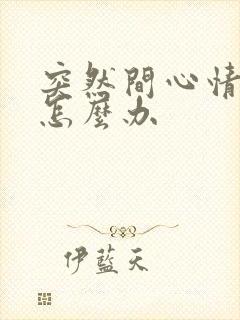 突然間心情
怎麼办
伊藍天